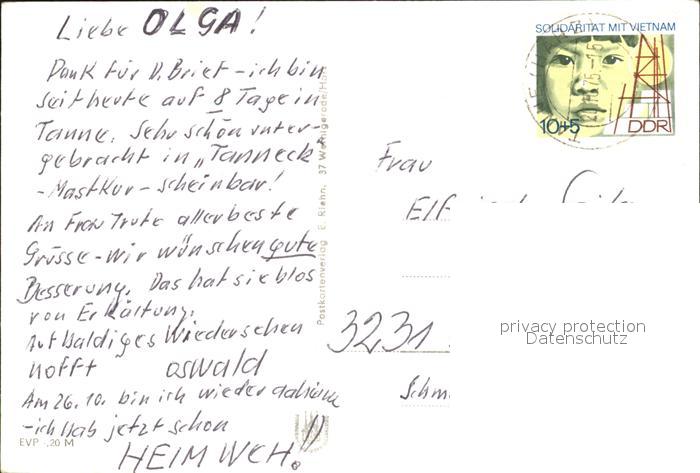 Liebe OLGA!
Dank für D. Brief - ich bin
seit heute auf 8 Tage in
Tanne. Sehr schön unter-
gebracht in "Tanneck"
- Mastkur - scheinbar!
An Frau Trute allerbeste
Grüsse - wir wünschen gute
Besserung. Das hat sie blos
von Erkältung.
Auf baldiges Wiedersehen
hofft oswald
Am 26.10. bin ich wieder daheim
- ich hab jetzt schon
HEIMWEH.!!
EVP -,20 M
Postkartenverlag E. Riehn, 37 Wernigerode/Harz
SOLIDARITÄT MIT VIETNAM
10+5
DDR
Frau
3231
privacy protection
Datenschutz